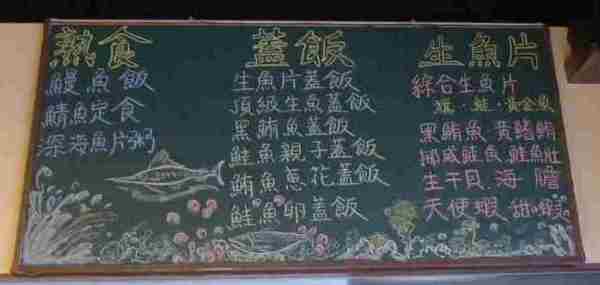 熟食
鰻魚飯
鯖魚定食
深海魚片粥
蓋飯
生魚片蓋飯
頂級生魚蓋飯
黑鮪魚蓋飯
鮭魚親子蓋飯
鮪魚蔥花蓋飯
鮭魚卵蓋飯
生魚片
綜合生魚片
旗.鮭.黃金魚
黑鮪魚 黃鰭鮪
挪威鮭魚.鮭魚肚
生干貝.海膽
天使蝦.甜蝦